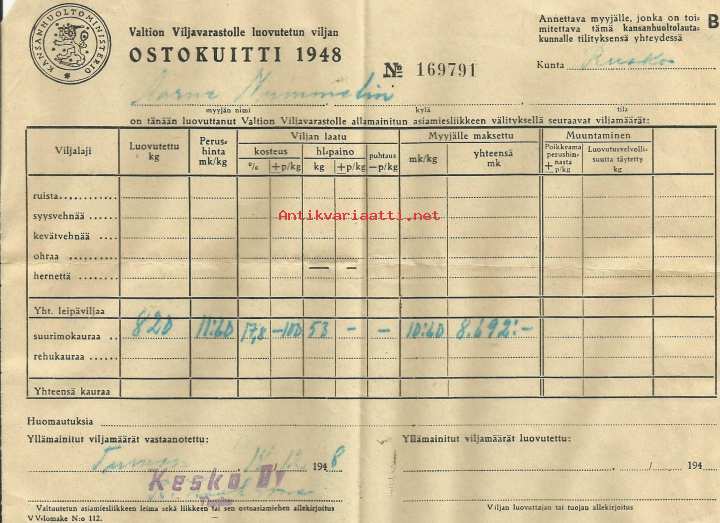 KANSANHUOLTOMINISTERIÖ
Valtion Viljavarastolle luovutetun viljan
OSTOKUITTI 1948
№ 169791
Annettava myyjälle, jonka on toi-
mitettava tämä kansanhuoltolauta-
kunnalle tilityksensä yhteydessä
B
Kunta Rusko
Aarne Nummelin
myyjän nimi kylä tila
on tänään luovuttanut Valtion Viljavarastolle allamainitun asiamiesliikkeen välityksellä seuraavat viljamäärät:
Viljalaji Luovutettu kg Perus- hinta mk/kg Viljan laatu Myyjälle maksettu Muuntaminen
kosteus hl-paino puhtaus −p/kg mk/kg yhteensä mk Poikkeama perushin- nasta ± p/kg Luovutusvelvolli- suutta täytetty kg
% ±p/kg kg ±p/kg
ruista
syysvehnää
kevätvehnää
ohraa
hernettä — –
Antikvariaatti.net
Yht. leipäviljaa
suurimokauraa 820 11:60 17,8 −100 53 – – 10:60 8.692:–
rehukauraa
Yhteensä kauraa
Huomautuksia
Yllämainitut viljamäärät vastaanotettu:
Yllämainitut viljamäärät luovutettu:
1948
/ 194
Kesko Oy
Valtautetun asiamiesliikkeen leima sekä liikkeen tai sen ostoasiamiehen allekirjoitus
Viljan luovuttajan tai tuojan allekirjoitus
VV-lomake N:o 112.